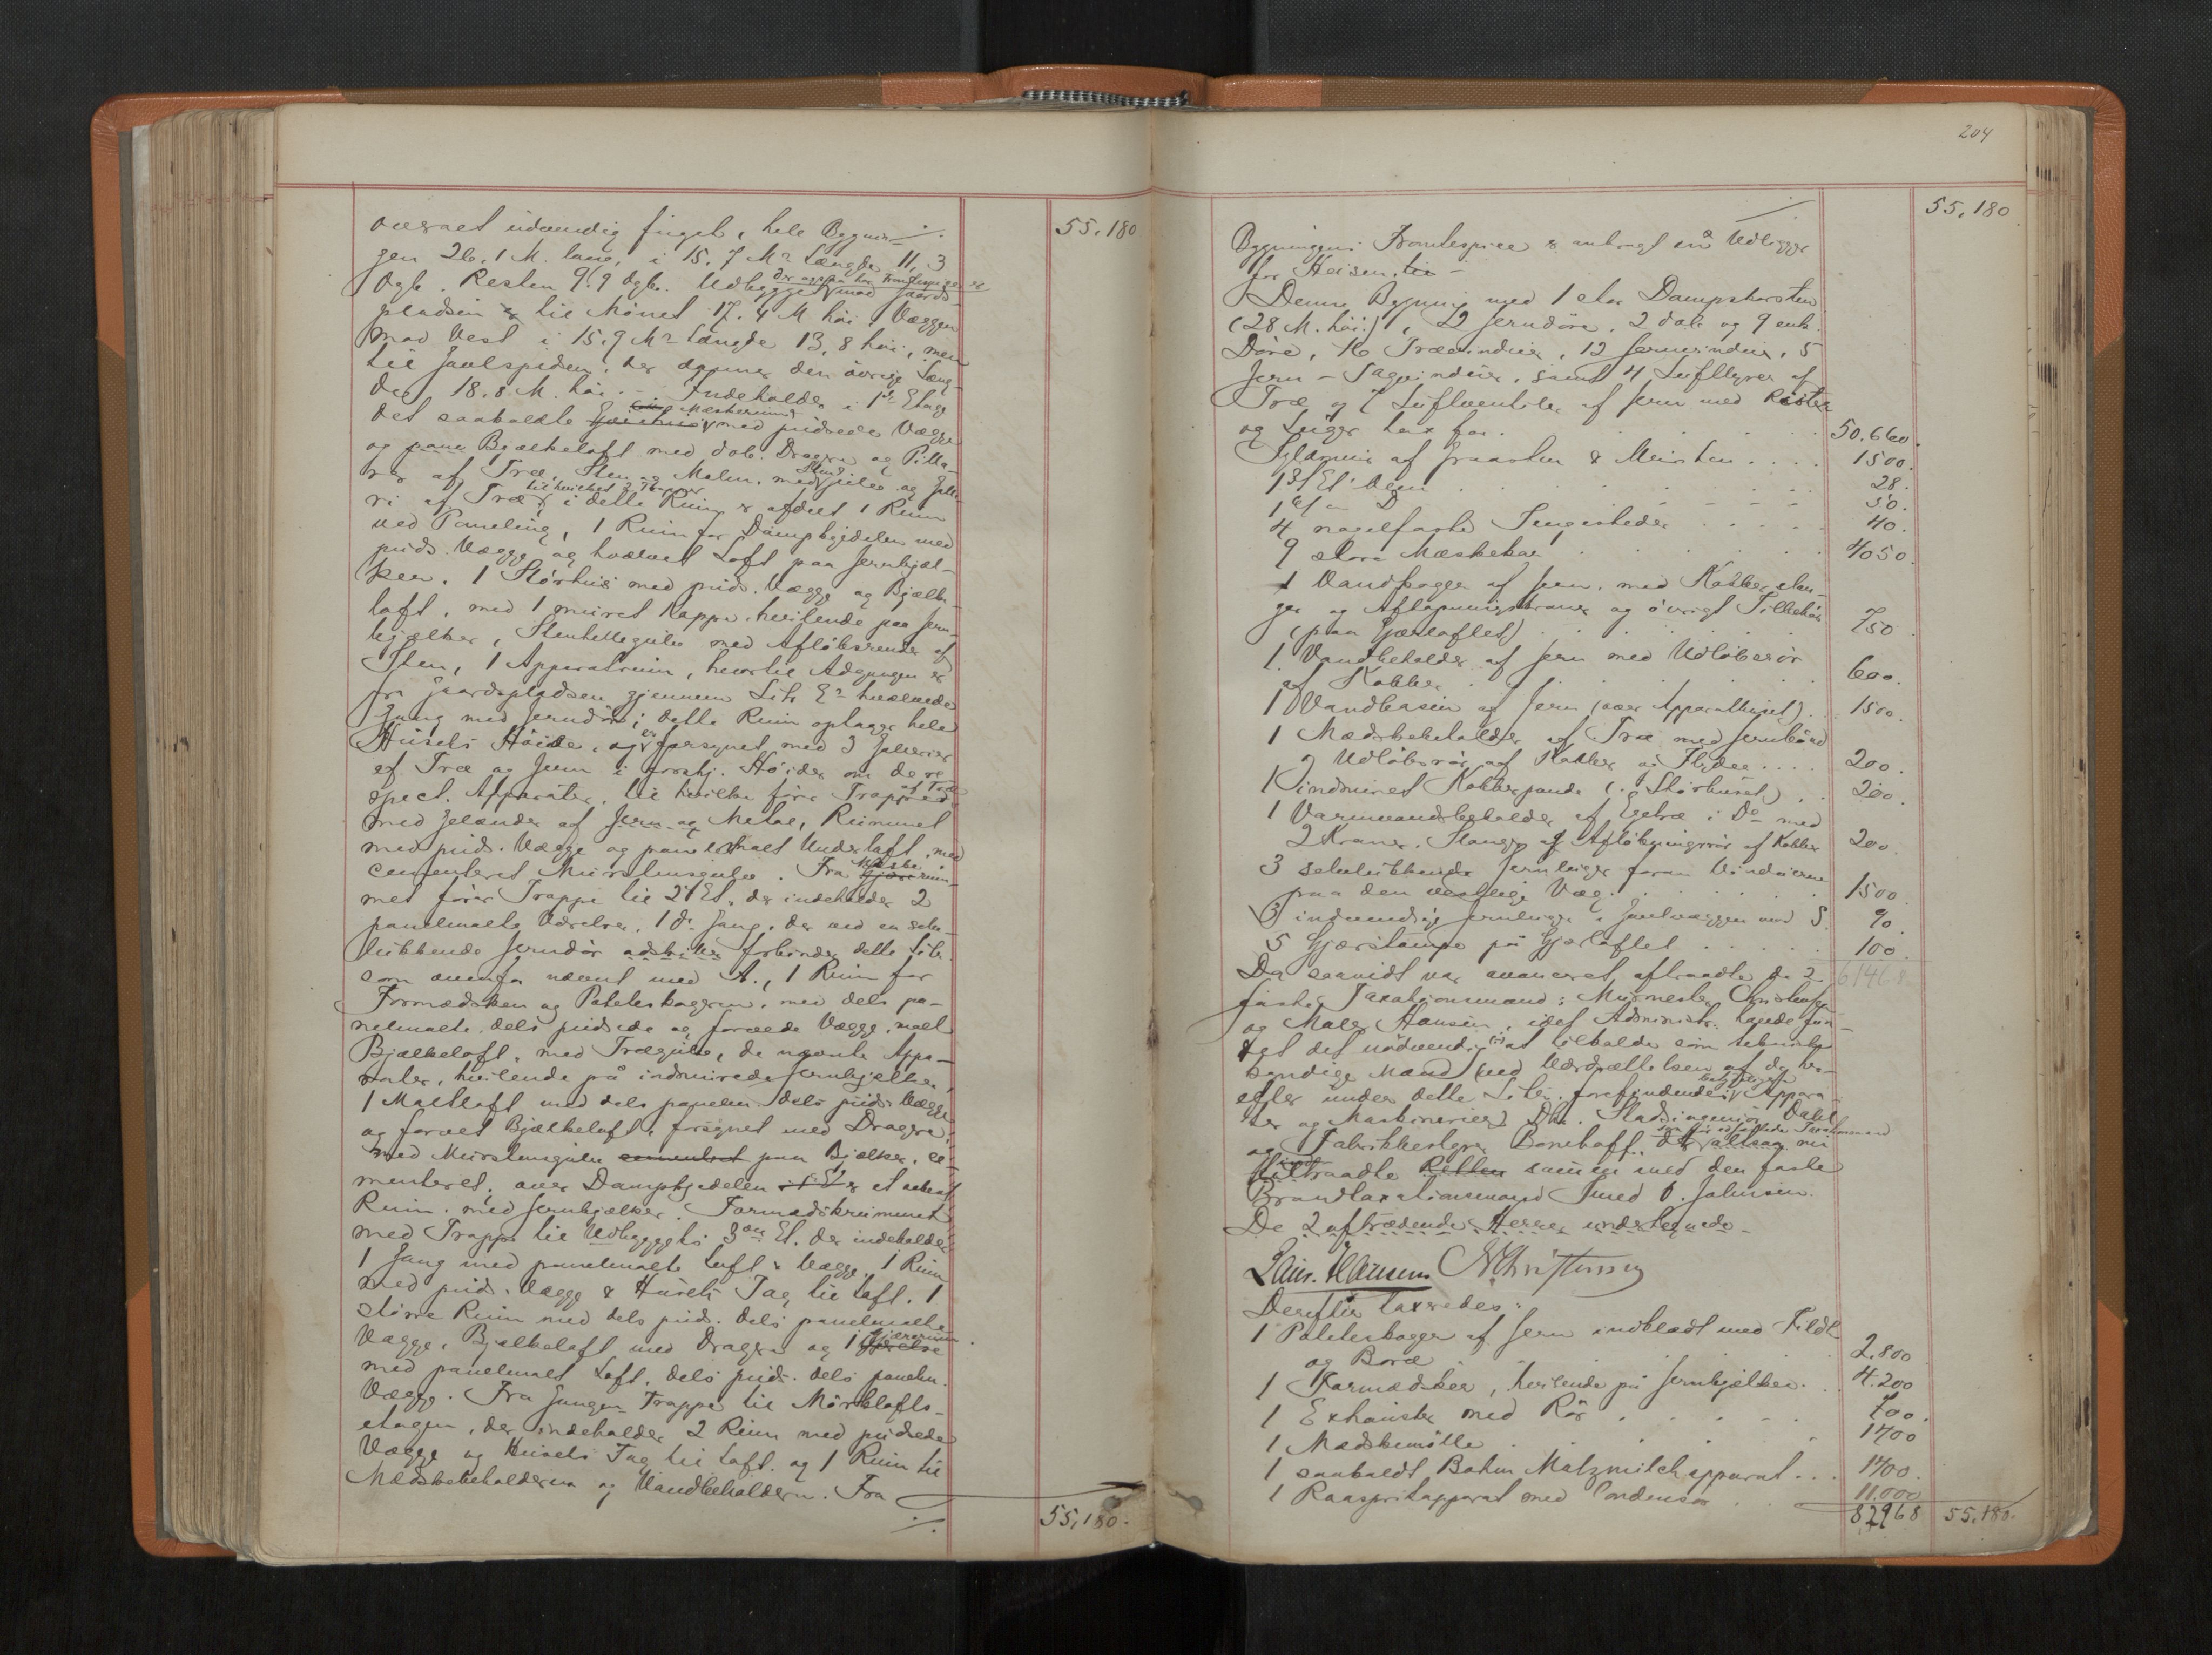 55,180
overnet udvendig fuget, hele Bygnin-
gen 26,1 M. lang, i 15,7 Mr Længde 11,3
Dyb. Resten 9,9 Dyb. Udbygget mod Gaards-
der ogsaa har Frontespice er
pladsen til Mønet 17,4 M høi, Væggen
mod Vest i 15,9 Mr Længde 13,8 høi, men
til Gavlspidsen, der danner den øvrige Læng-
de, 18,8 M. høi. - Indeholder i 1ste Etage
det saakaldte Mæskerum med pudsede Vægge
og pane Bjælkeloft med dob. Dragere og Pilla-
rer af Træ, Sten og Malm, med Stengulv og Galle-
ri af Træ, til hvilket 2 Trapper, i dette Rum er afdelt 1 Rum
ved Paneling, 1 Rum for Dampkjedelen med
puds. Vægge og hvælvet Loft paa Jernbjæl-
ker. 1 Størhus med puds. Vægge og Bjælke-
loft, med 1 muret Kappe, hvilende paa Jern-
bjælker, Stenhellegulv med Afløbsrender af
Sten, 1 Apparatrum, hvortil Adgangen er
fra Gaardspladsen gjennem Litr. E's hvælvede
Gang med Jerndør; dette Rum optager hele
Husets Høide, og er forsynet med 3 Gallerier
af Træ og Jern i forskj. Høider om de re-
spect. Apparater, til hvilke fører Trapper af Træ
med Gelænder af Jern og Metal, Rummet
med puds. Vægge og panelmalt Underloft, med
cementeret Murstensgulv. Fra Mæskerum-
met fører Trappe til 2den Et. der indeholder 2
panelmalte Værelser, 1 do Gang, der ved en selv-
lukkende Jerndør adskilles forbinder dette Litr.
som ovenfor nævnt med A., 1 Rum for
Formædsken og Poteteskoggeren, med dels pa-
nelmalte, dels pudsede og farvede Vægge, malt
Bjælkeloft, med Trægulv, de nævnte Appa-
rater, hvilende på indmurede Jernbjælker,
1 Maltloft med dels panelm. dels puds. Vægge
og farvet Bjælkeloft, forsynet med Dragere,
med Murstensgulv cementeret paa Bjælker, ce-
menteret; over Dampkjedelen er et aabent
Rum med Jernbjælker. Formædskrummet
med Trappe til Udbyggets 3die Et. der indeholder
1 Gang med panelmalte Loft & Vægge, 1 Rum
med puds. Vægge & Husets Tag til Loft. 1
større Rum med dels puds. dels panelmalte
Vægge, Bjælkeloft med Dragere og 1 Gjærrum
med panelmalt Loft, dels puds. dels panelm.
Vægge. Fra Gangen Trappe til Mørkelofts-
etagen, der indeholder 2 Rum med pudsede
Vægge og Husets Tag til Loft, og 1 Rum til
Mædskebeholderen og Vandbeholderen. Fra
55,180.
204
55,180
Bygningens Frontespice er anbragt en Udligger
for Heisen. -
Denne Bygning med 1 stor Dampskorsten
(28 M. høi), 12 Jerndøre, 2 dob. og 9 enk.
Døre, 16 Trævinduer, 12 Jernvinduer, 5
Jern-Tagvinduer, samt 4 Lufthyrer af
Træ og 7 Luftventiler af Jern med Rister
og Luger tax for . 50,660.
Syldmur af Graasten & Mursten . . . . 1500.
1 3/4 El. Ovn . 28.
1 D . 30.
4 nagelfaste Sengesteder . 40.
9 store Mæskekar . 4050.
1 Vandkogger af Jern, med Kobberslan-
ger og Aftapningskraner og øvrigt Tilbehør
(paa Gjærloftet) . 750
1 Vandbeholder af Jern med Udløbsrør
af Kobber . 600.
1 Vandbasin af Jern (over Apparathuset) . 1500.
1 Mædskebeholder af Træ med Jernbånd
2 Udløbsrør af Kobber og Flydee . . . . 200.
1 indmuret Kobberpande (i Størhuset) . . 200.
1 Varmvandsbeholder af Egetræ i Do med
2 Kraner, Slanger af Afløbningsrør af Kobber 200
3 selvlukkende Jernluger foran Vinduerne
paa den vestlige Væg . 1500
3 indvendige Jernluger i Gavlvæggen mod S. 90.
5 Gjærstampe på Gjærloftet . 100.
61468
Da saavidt var avanceret, aftraadte de 2
faste Taxationsmænd: Murmester Christensen
og Maler Hansen, idet Administr. havde fun-
det det nødvendigt at tilkalde som teknisk
kyndige Mænd (ved Værdsættelsen af de her-
efter under dette Litr. forefindende Appara-
ter og Maskinerier) Dhr. Stadsingeniør Dahl
og Fabrikbestyrer Bonehoff, der altsaa nu
tiltraadte Retten sammen med den faste
Brandtaxationsmand Smed O. Johnsen.
De 2 aftrædende Herrer undertegnede -
Laur. Hansen NChristensen
Derefter taxeredes:
1 Poteteskogger af Jern indklædt med Fildt
og Bord . 2.800
1 Formædsker, hvilende på Jernbjælker . . . 4.200
1 Exhauster med Rør . 700.
1 Mædskemølle . 1400
1 saakaldt Bohm Malzmilchapparat . . . 1400.
1 Raaspritapparat med Condensor . 11.000
82968 55,180.